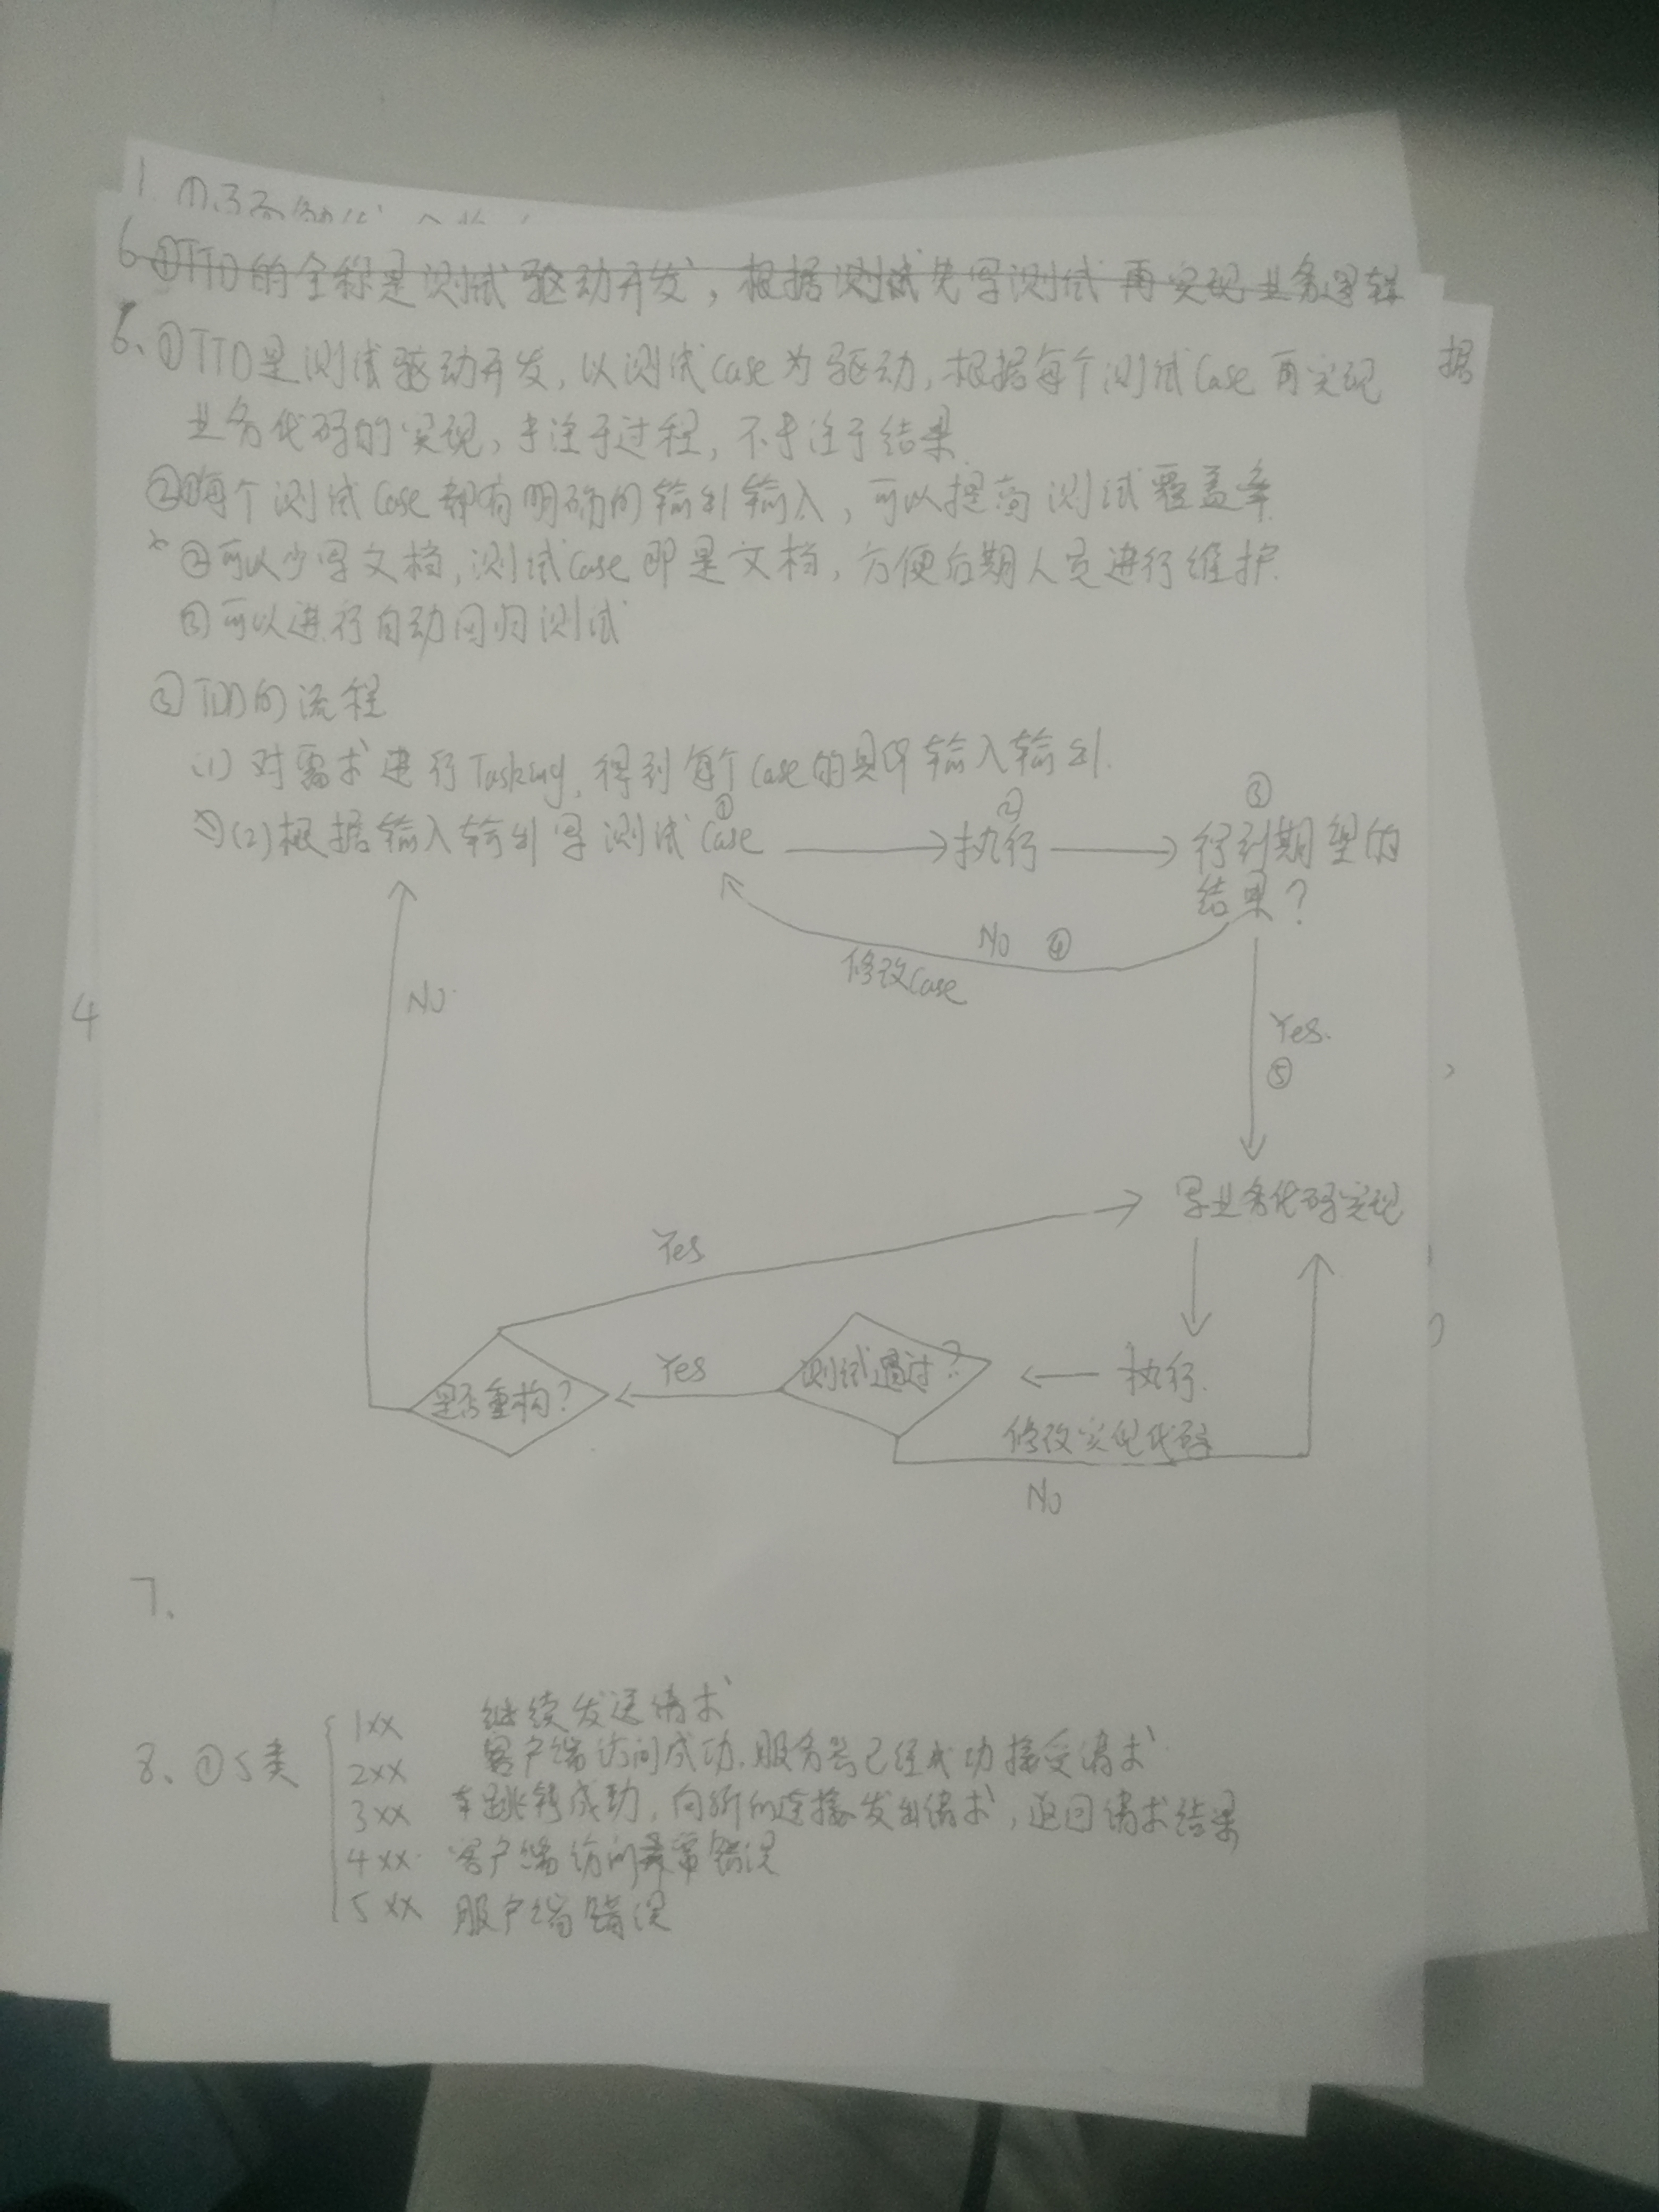 6 ①TTD的全称是测试驱动开发，根据测试先写测试再实现业务逻辑
6、①TTD是测试驱动开发，以测试Case为驱动，根据每个测试Case再实现
据
业务代码的实现，专注于过程，不专注于结果.
②①每个测试Case都有明确的输出输入，可以提高测试覆盖率.
②可以少写文档，测试Case即是文档，方便后期人员进行维护.
③可以进行自动回归测试
③TDD的流程
(1) 对需求进行Tasking，得到每个Case的具体输入输出.
① ② ③
(2)根据输入输出写测试Case 执行 得到期望的
结果？
No ④
修改Case
No
4
Yes.
⑤
写业务代码实现
Yes
是否重构？ Yes 测试通过？ 执行.
修改实现代码
No
7.
8、①5类
1xx 继续发送请求
2xx 客户端访问成功，服务器已经成功接受请求
3xx 跳转成功，向新的连接发出请求，返回请求结果
4xx 客户端访问错误
5xx 服户端错误